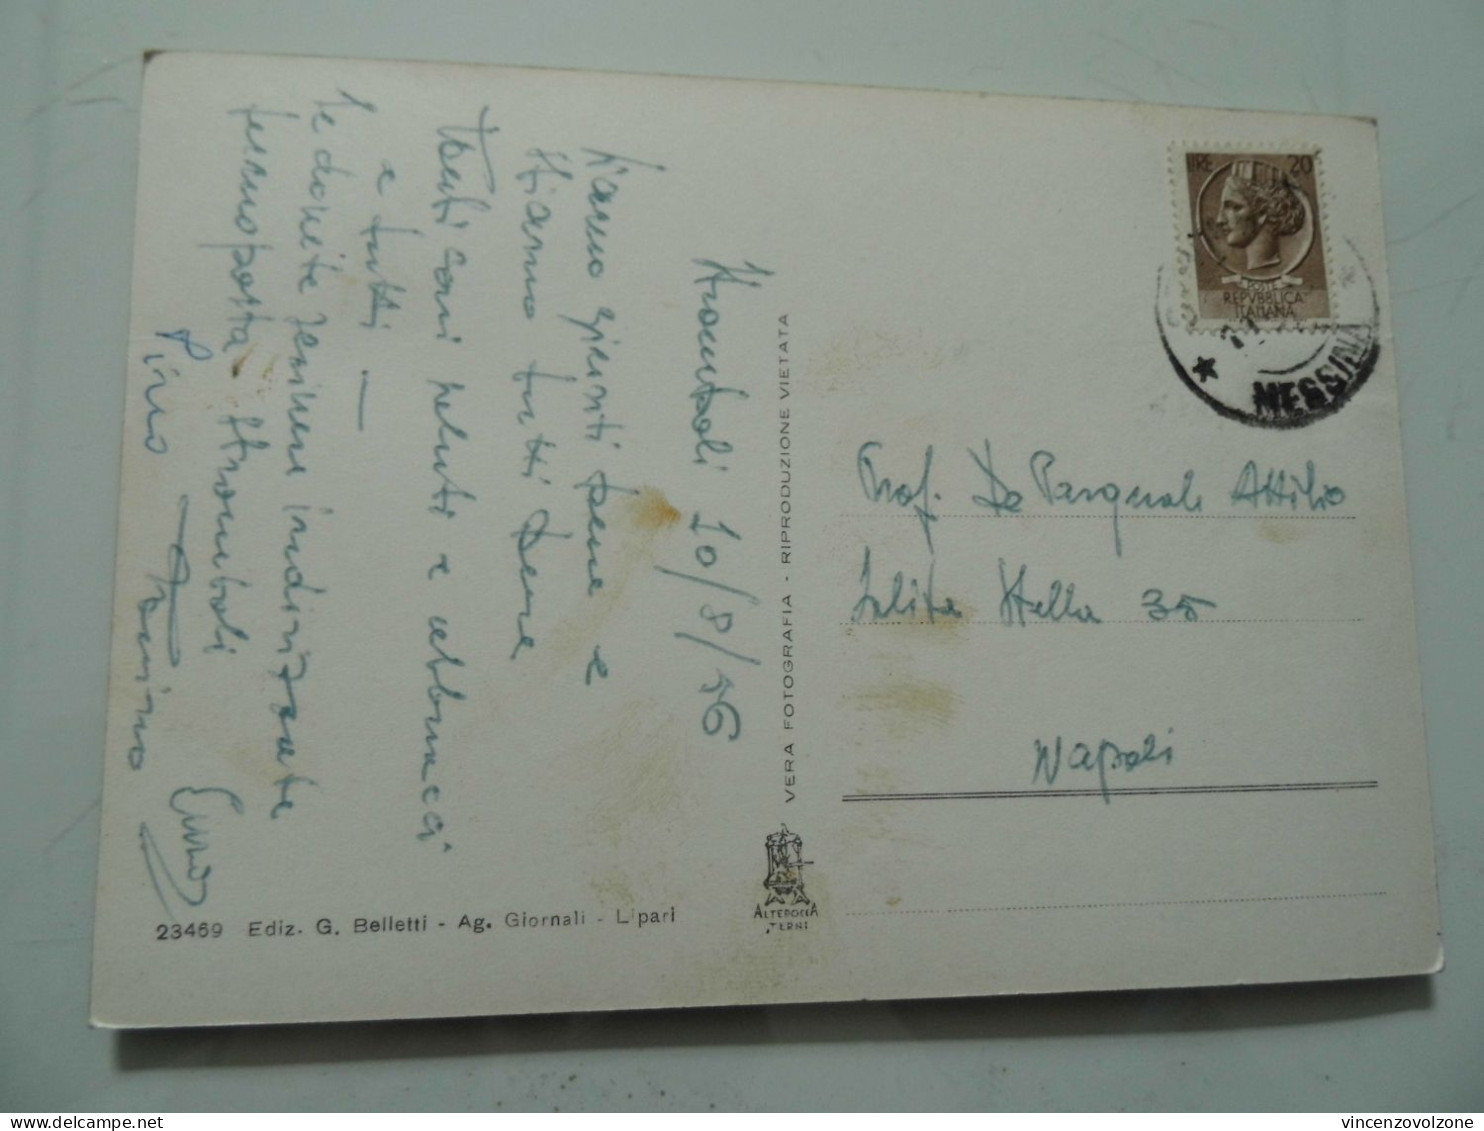 Stromboli 10/8/56
Siamo giunti bene e
stiamo tutti bene
Tanti cari saluti e abbracci
e tutti —
Se dovete scrivere indirizzate
fermoposta Stromboli
Pino
Tonino
Enzo
VERA FOTOGRAFIA - RIPRODUZIONE VIETATA
ALTEROCCA
TERNI
23469 Ediz. G. Belletti - Ag. Giornali - Lipari
LIRE 20
POSTE
REPVBBLICA
ITALIANA
MESSINA
Prof. De Pasquale Attilio
Salita Stella 35
Napoli
vincenzovolzone